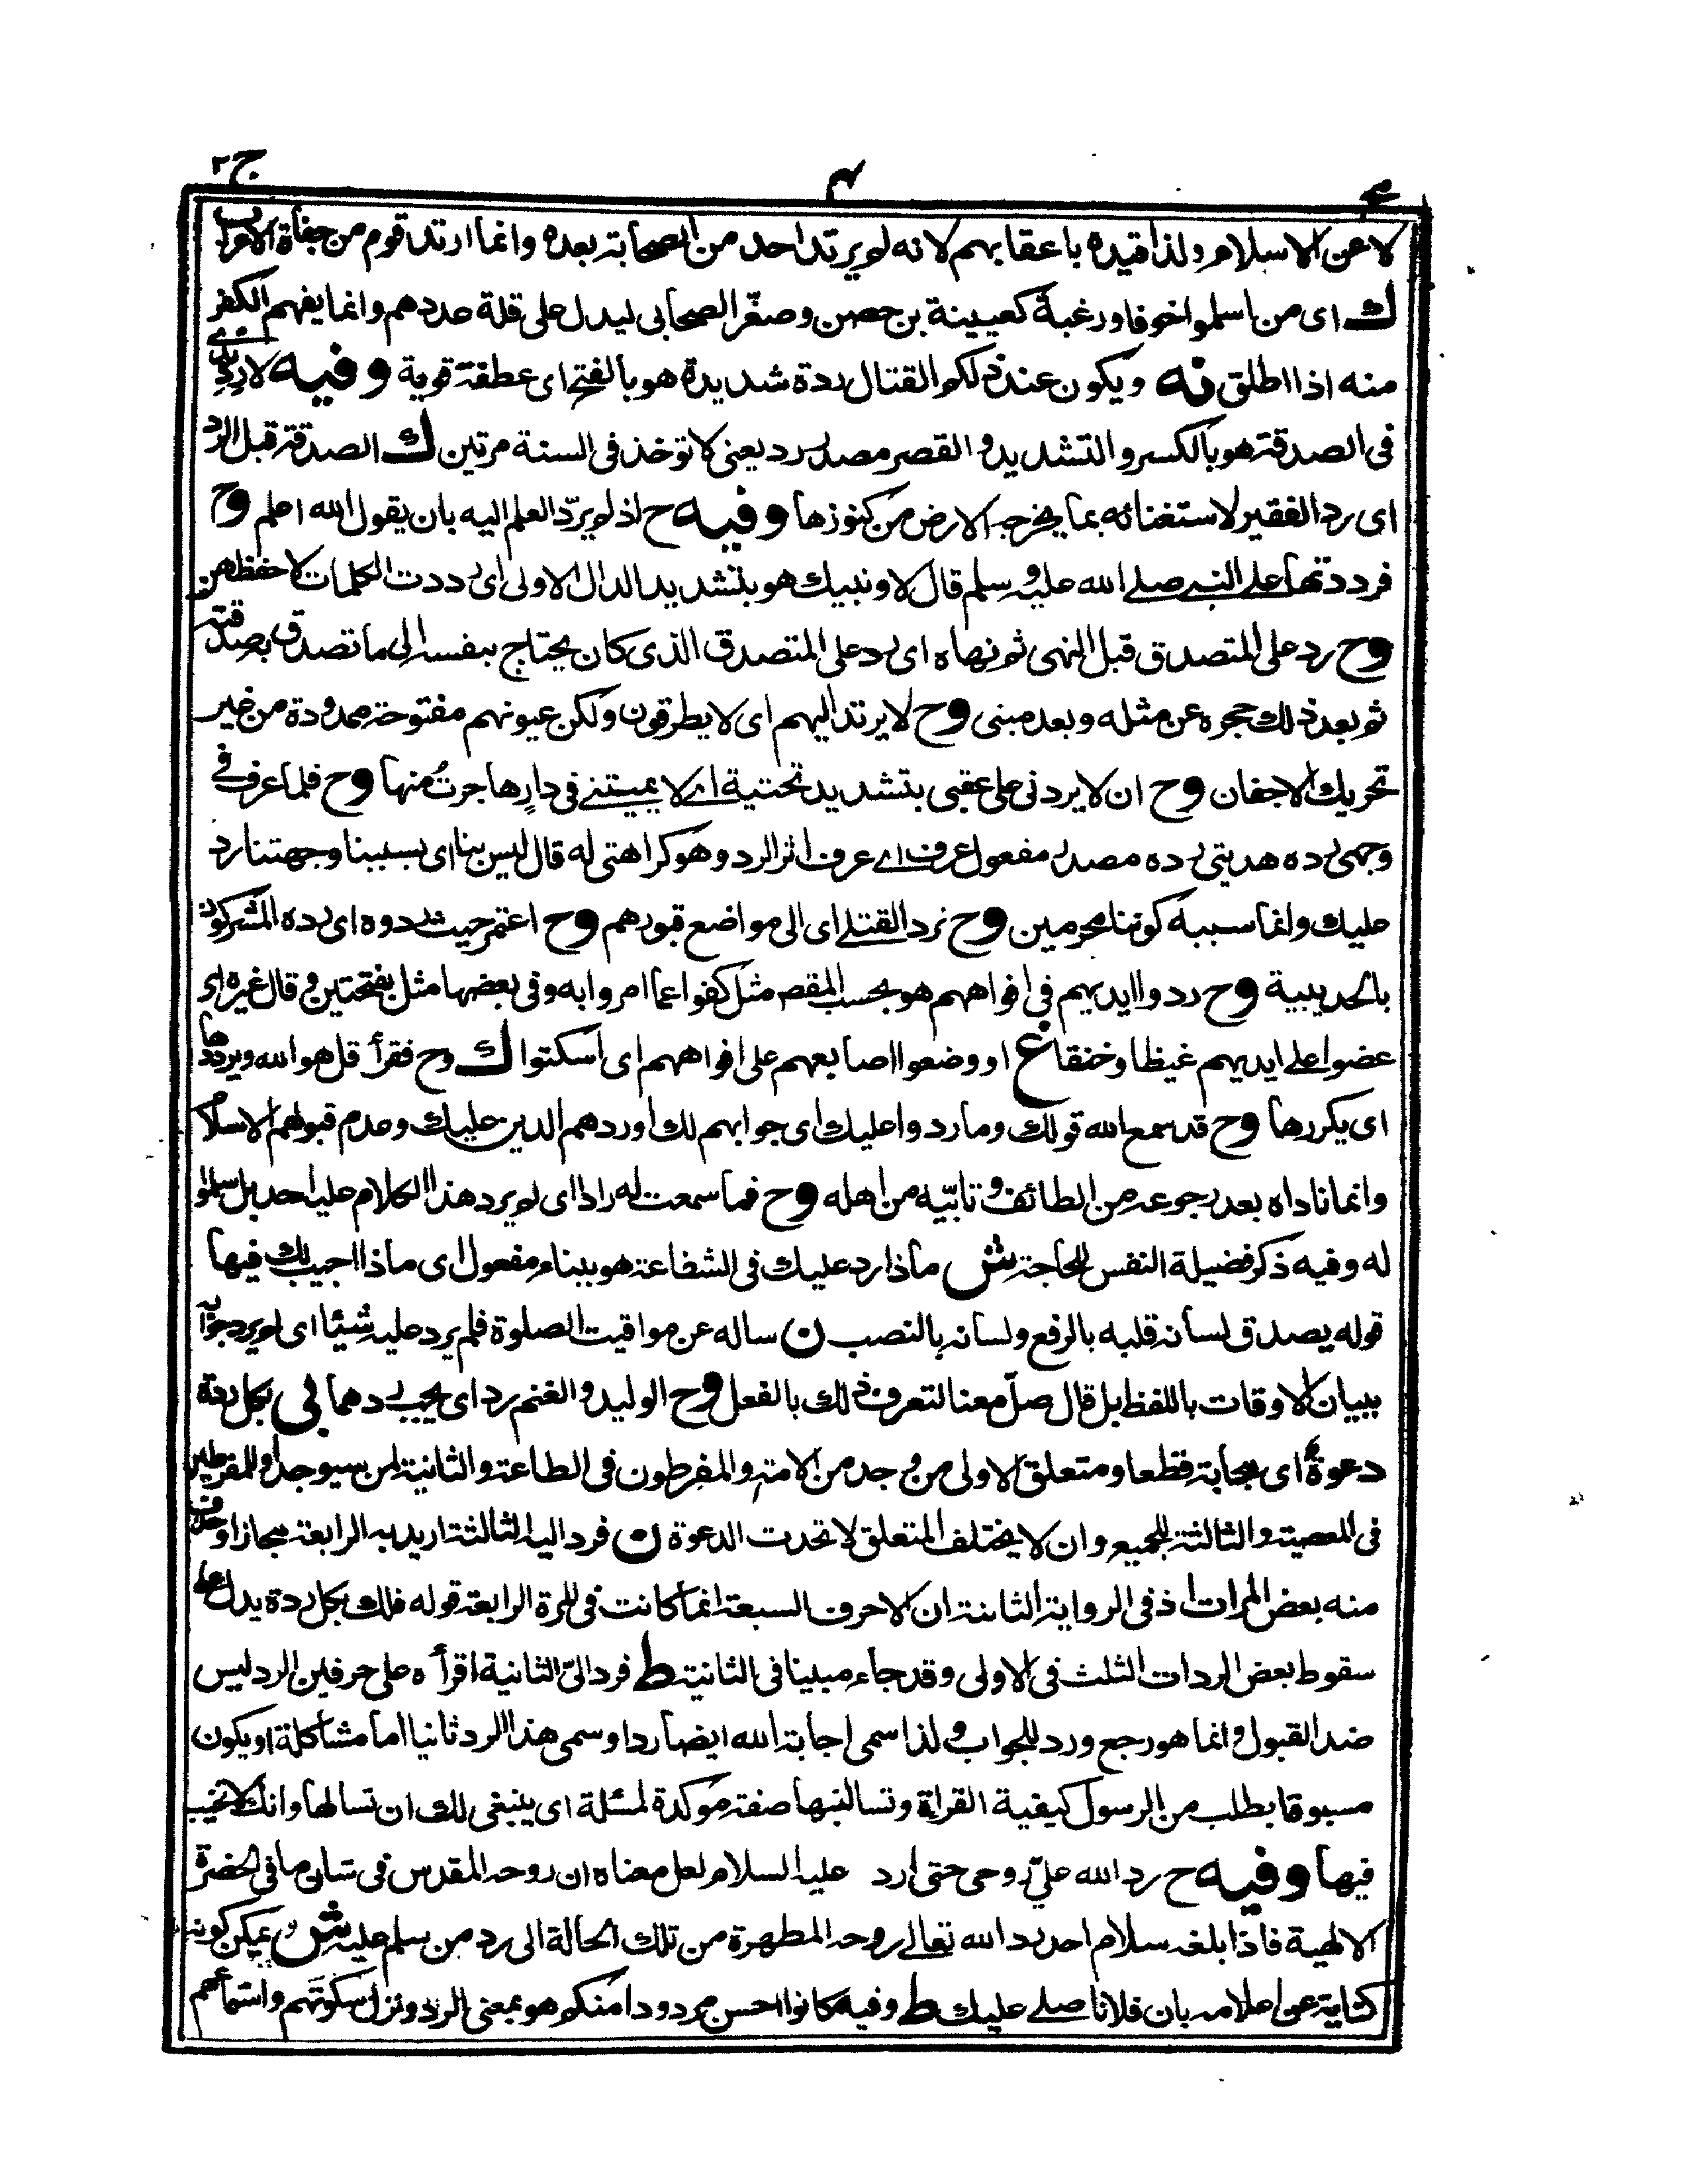 ج ٢
لا عن الاسلام ولذا قيده باعقابهم لانه لم يرتد احد من الصحابة بعده وانما ارتد قوم من جفاة الاعراب
ك اى من اسلموا خوفا ورغبة كعيينة بن حصن وصغّر الصحابى ليدل على قلة عددهم وانما يفهم الكفر
منه اذا اطلق نه ويكون عند ذلكم القتال ردة شديدة هو بالفتح اى عطفة قوية وفيه لا ردّى
فى الصدقة هو بالكسر والتشديد والقصر مصدر رد يعنى لا توخذ فى السنة مرتين ك الصدقة قبل الرد
اى رد الفقير لاستغنائه بما يخرجه الارض من كنوزها وفيه ح اذ لم يردّ العلم اليه بان يقول الله اعلم وح
فرددتها على النبى صلى الله عليه وسلم قال لا ونبيك هو بتشديد الدال الاولى اى رددت الكلمات لاحفظهن
وح رد على المتصدق قبل النهى ثم نهاه اى رد على المتصدق الذى كان يحتاج بنفسه الى ما تصدق بصدقته
ثم بعد ذلك حجره عن مثله وبعد مبنى وح لا يرتد اليهم اى لا يطرقون ولكن عيونهم مفتوحة ممدودة من غير
تحريك الاجفان وح ان لا يردنى على عقبى بتشديد تحتية اى لا يميتنى فى دارٍ هاجرتُ منها وح فلما عرف فى
وجهى رده هديتى رده مصدر مفعول عرف اى عرف اثر الرد وهو كراهتى له قال ليس بنا اى بسببنا وجهتنا رد
عليك وانما سببه كوننا محرمين وح نرد القتلى اى الى مواضع قبورهم وح اعتمر حيث ردوه اى رده المشركون
بالحديبية وح ردوا ايديهم فى افواههم هو بحسب المقصد مثل كفوا عما امروا به وفى بعضها مثل بفتحتين وقال غيره اى
عضوا على ايديهم غيظا وخنقا غ او وضعوا اصابعهم على افواههم اى اسكتوا ك وح فقرأ قل هو الله ويرددها
اى يكررها وح قد سمع الله قولك وما ردوا عليك اى جوابهم لك او ردهم الدين عليك وعدم قبولهم الاسلام
وانما ناداه بعد رجوعه من الطائف وتأبّيه من اهله وح فما سمعت له رادا اى لم يرد هذا الكلام عليه احد بل سلموا
له وفيه ذكر فضيلة النفس للحاجة ش ماذا رد عليك فى الشفاعة هو ببناء مفعول اى ماذا اجيب لك فيها
قوله يصدق لسانه قلبه بالرفع ولسانه بالنصب ن ساله عن مواقيت الصلوة فلم يرد عليه شيئا اى لم يرد جوابه
ببيان الاوقات باللفظ بل قال صلّ معنا لتعرف ذلك بالفعل وح الوليد والغنم رد اى يجب ردهما فى بكل ردة
دعوة اى مجابة قطعا ومتعلق الاولى من وجد من الامة والمفرطون فى الطاعة والثانية لمن سيوجد او للمفرطين
فى المعصية والثالثة للجميع وان لا يختلف المتعلق لاتحدت الدعوة ن فرد اليه الثالثة اريد به الرابعة مجازا وحذف
منه بعض المرات اذ فى الرواية الثانية ان الاحرف السبعة انما كانت فى المرة الرابعة قوله فلك بكل ردة يدل على
سقوط بعض الردات الثلث فى الاولى وقد جاء مبينا فى الثانية ط فرد الىّ الثانية اقرأه على حرفين الرد ليس
ضد القبول وانما هو رجع ورد للجواب ولذا سمى اجابة الله ايضا ردا وسمى هذا الرد ثانيا اما مشاكلة او يكون
مسبوقا بطلب من الرسول كيفية القراءة وتسالنيها صفة موكدة لمسئلة اى ينبغى لك ان تسالها وانك لا تخيب
فيها وفيه ح رد الله علىّ روحى حتى ارد عليه السلام لعل معناه ان روحه المقدس فى شان ما فى الحضرة
الالهية فاذا بلغه سلام احد رد الله تعالى روحه المطهرة من تلك الحالة الى رد من سلم عليه ش ويمكن كونه
كناية عن اعلامه بان فلانا صلى عليك ط وفيه كانوا احسن مردودا منكم هو بمعنى الرد ونزل سكوتهم واستماعهم